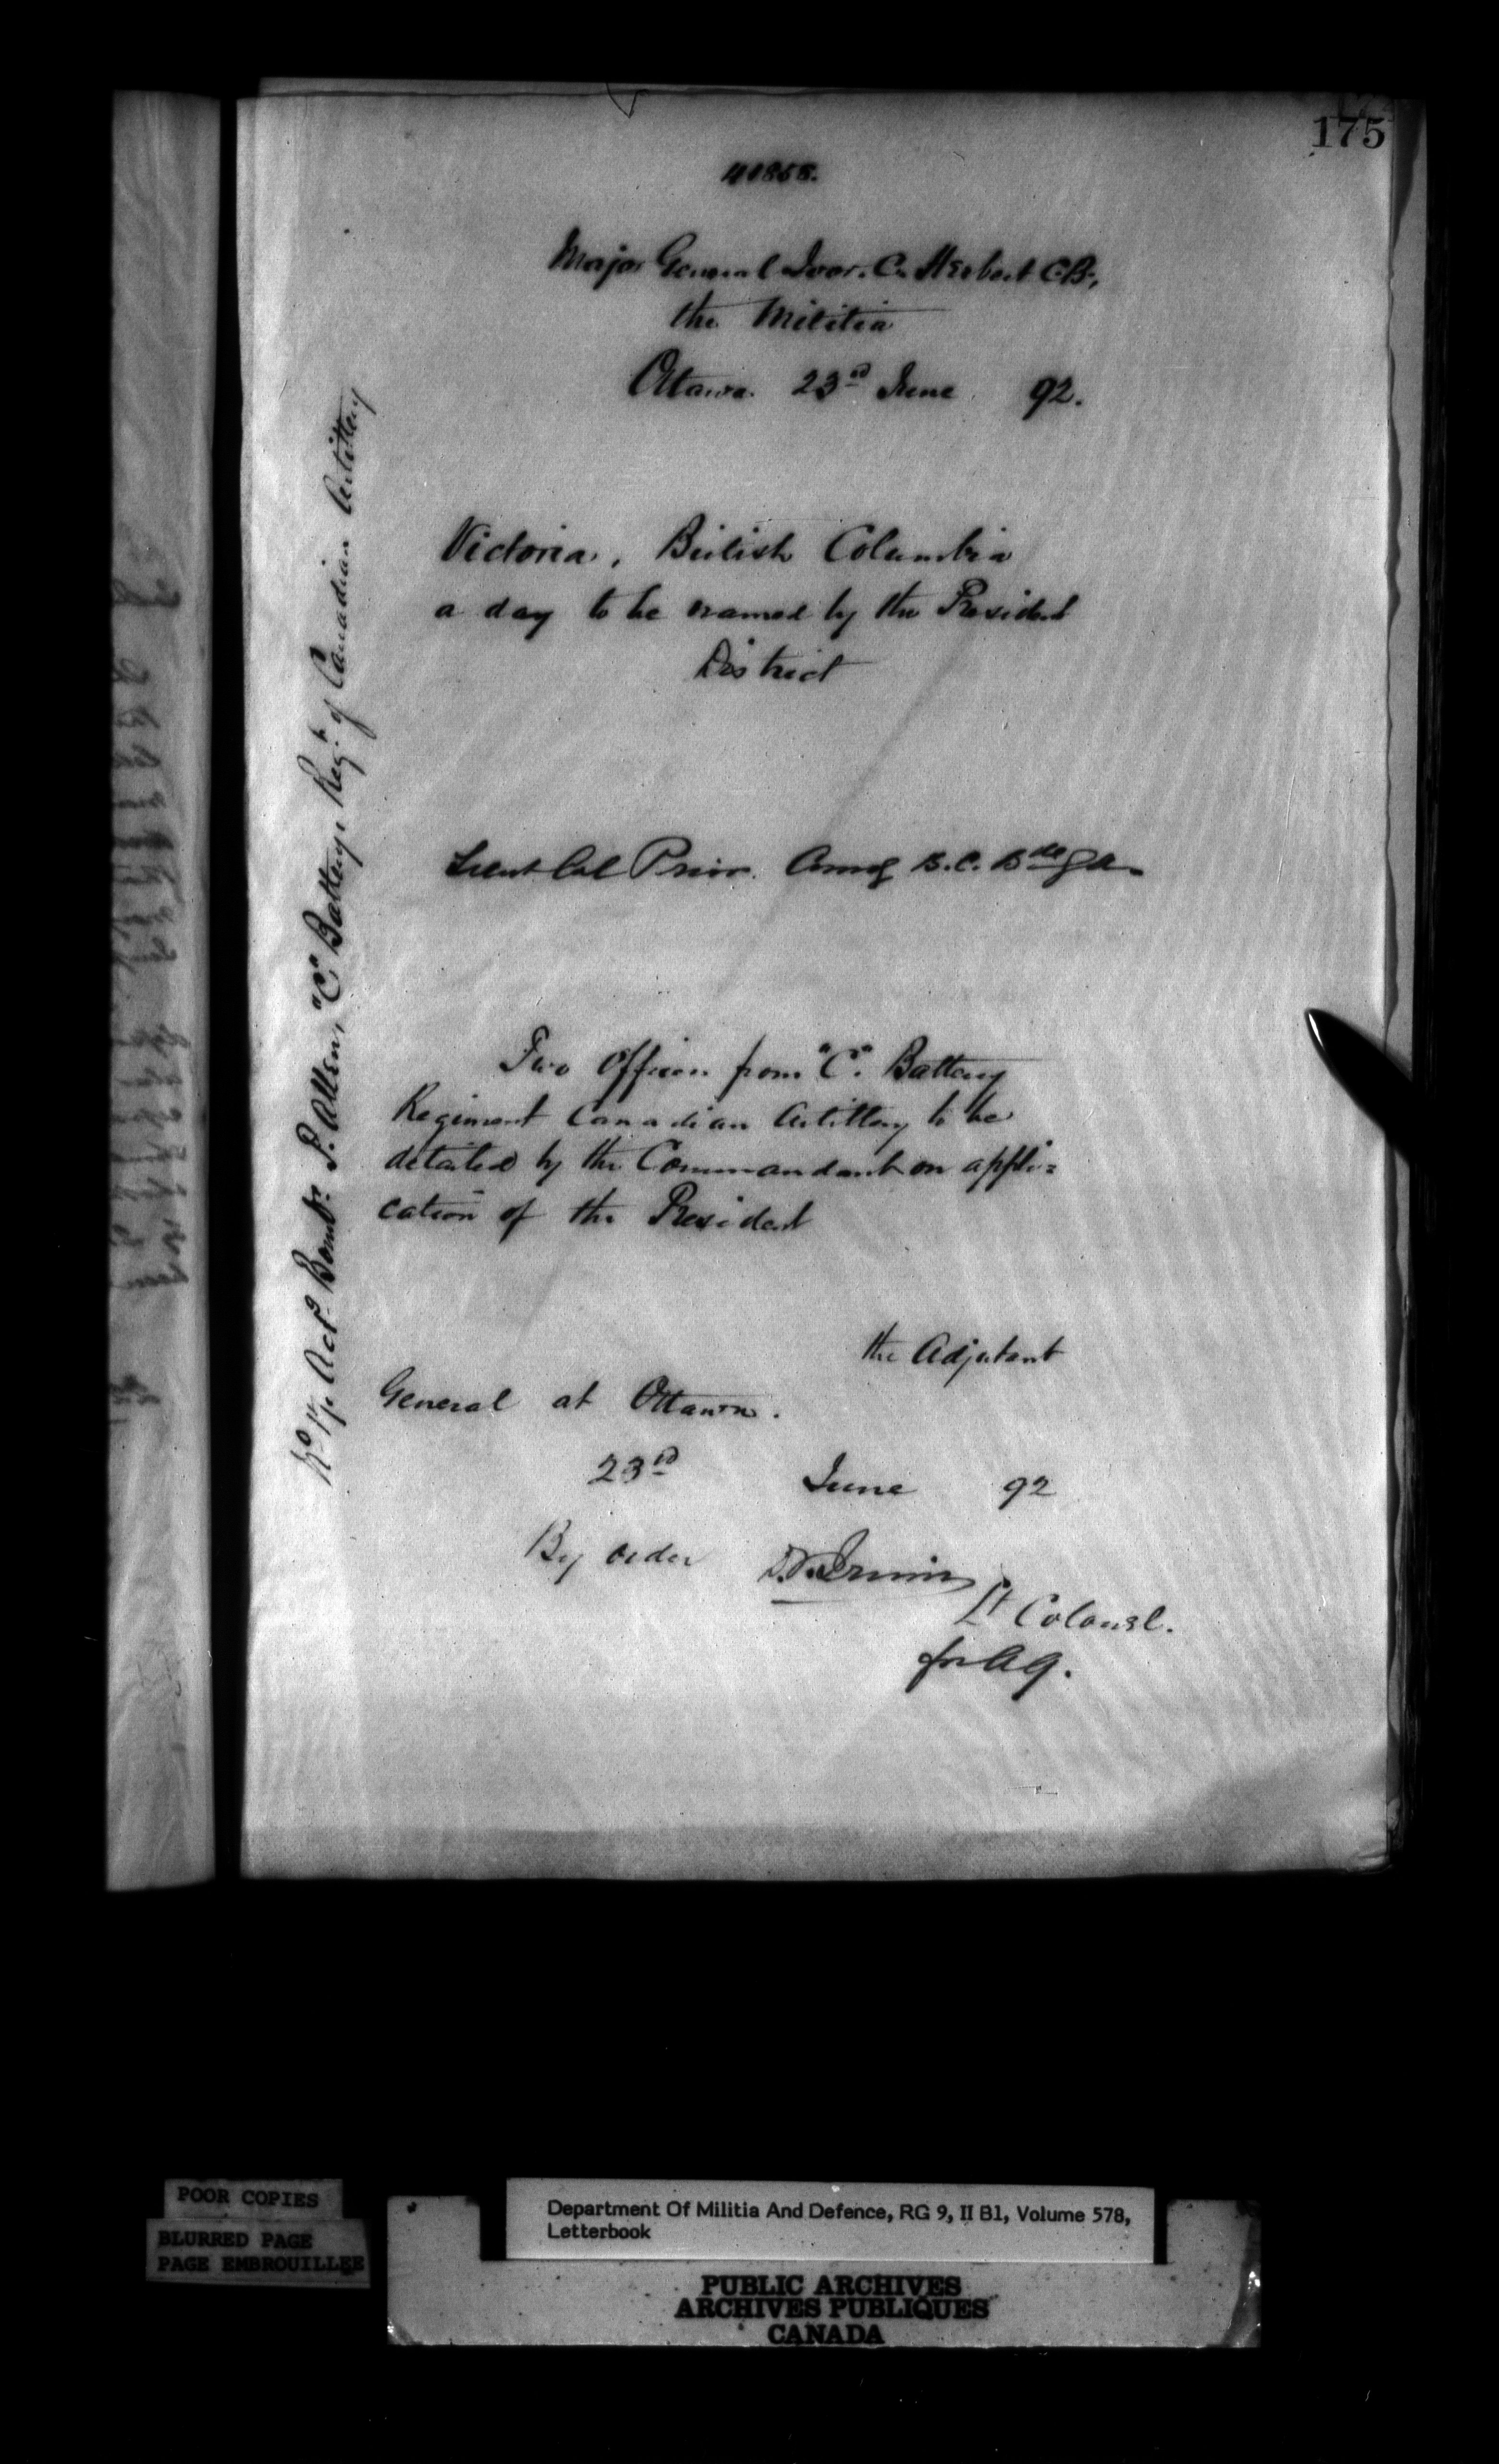 175
Major General Ivor. C. Herbert C.B.,
the Militia
Ottawa. 23rd June 92.
Victoria, British Columbia
a day to be named by the President
District
Lieut Col Prior. Comg B.C. Bde G.A.
Two Officers from "C". Battery
Regiment Canadian Artillery to be
detailed by the Commandant on appli=
cation of the President
the Adjutant
General at Ottawa.
23rd June 92
By order Irwin
Lt Colonel.
for A.G.
Actg Bombr. P. Allen, "C" Battery, Regt. of Canadian Artillery
POOR COPIES
BLURRED PAGE
PAGE EMBROUILLEE
Department Of Militia And Defence, RG 9, II B1, Volume 578,
Letterbook
PUBLIC ARCHIVES
ARCHIVES PUBLIQUES
CANADA